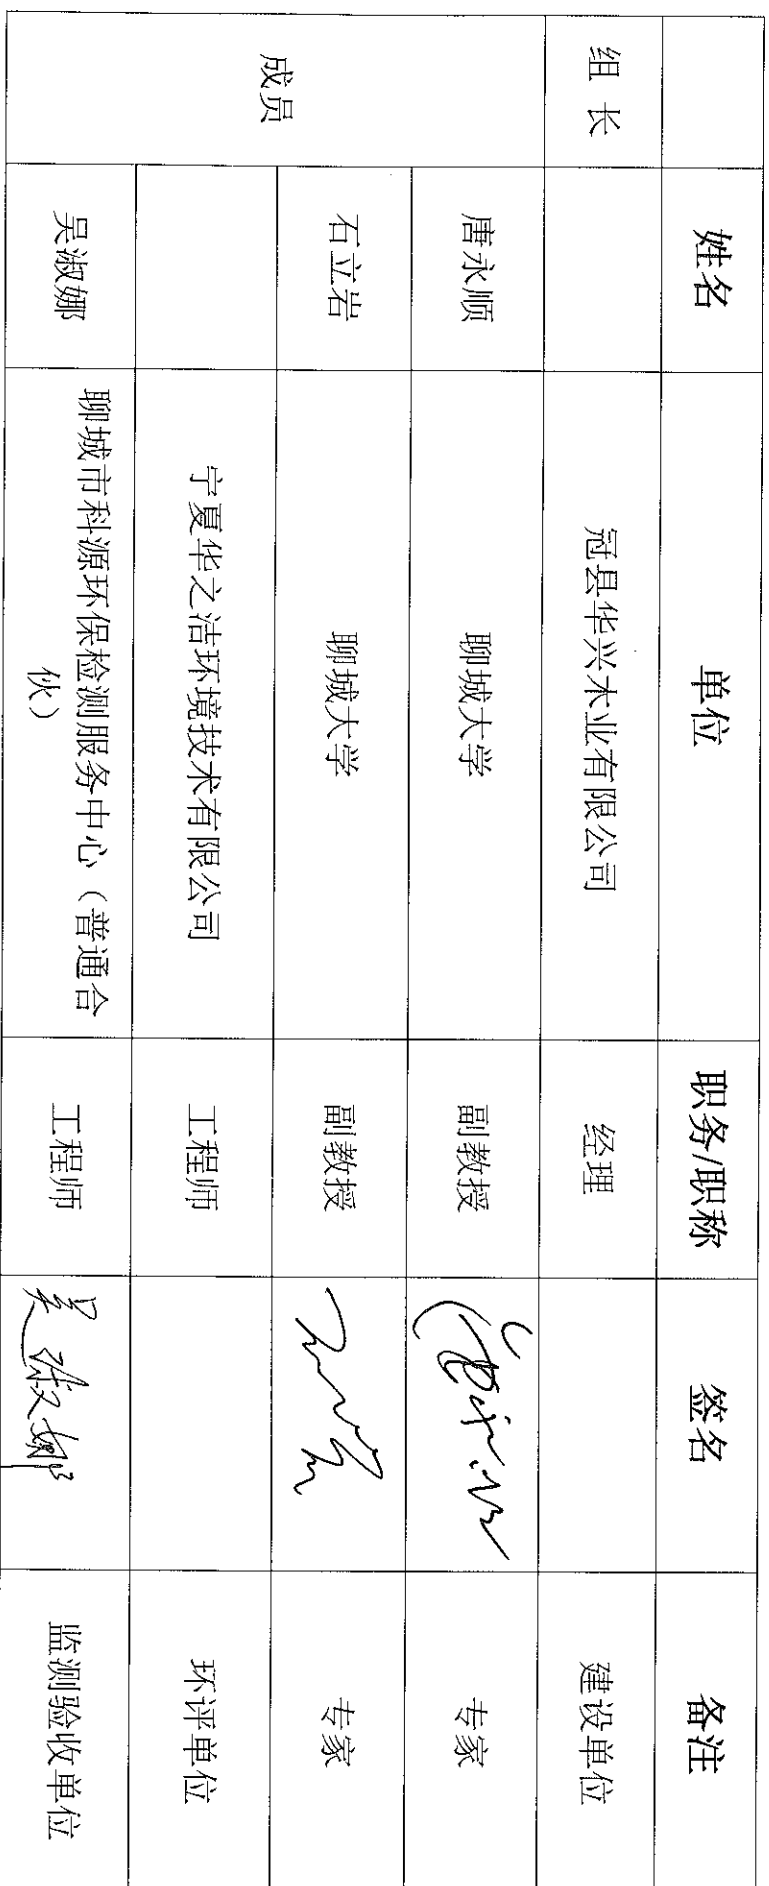 姓名 单位 职务/职称 签名 备注
组 长 冠县华兴木业有限公司 经理 建设单位
成员 唐永顺 聊城大学 副教授 唐永顺 专家
石立岩 聊城大学 副教授 石立岩 专家
宁夏华之洁环境技术有限公司 工程师 环评单位
吴淑娜 聊城市科源环保检测服务中心（普通合
伙） 工程师 吴淑娜 监测验收单位